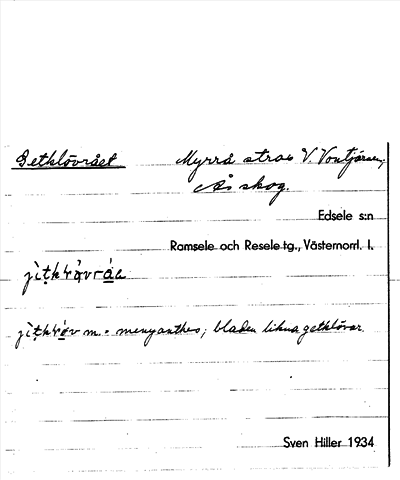 Getklövrået Myrrå strax V. Vontjärnen,
Ås skog.
Edsele s:n
Ramsele och Resele tg., Västernorrl. l.
jìtkḷòvrác
jìtkḷòv m. = menyanthes; bladen likna getklövar.
Sven Hiller 1934